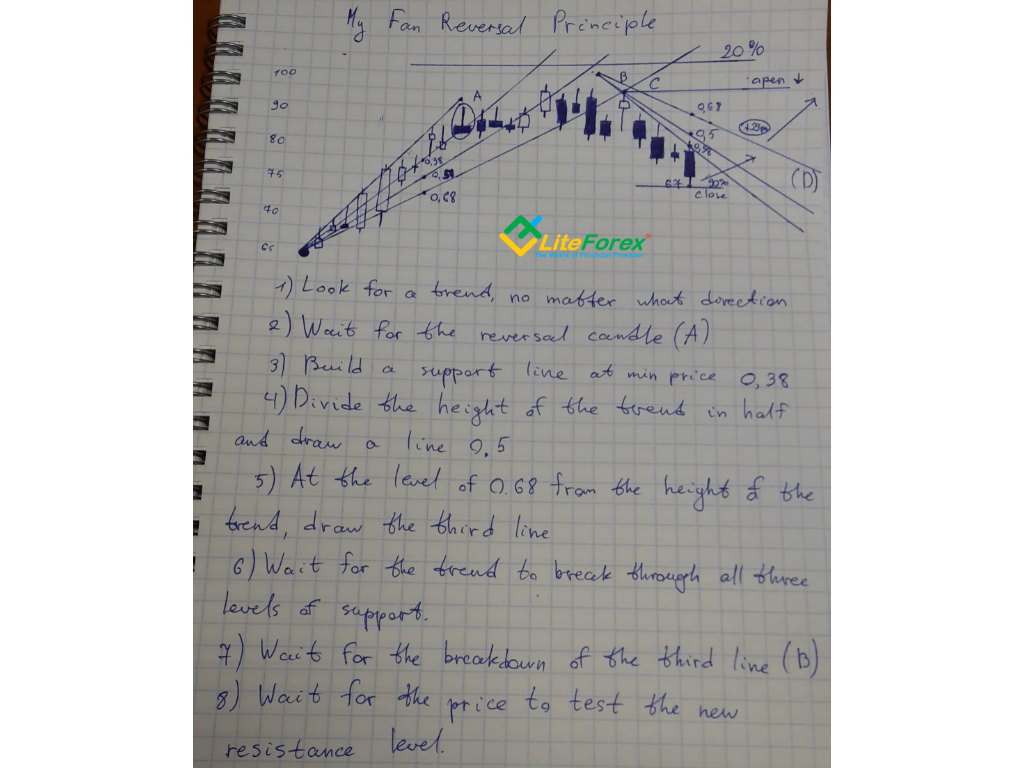 My Fan Reversal Principle
20%
100
B
C
open ↓
90
A
0,68
80
0,5
0,38
0,38
75
0,5
(D)
0,68
67
90%
close
70
65
LiteForex
The World of Financial Freedom
1) Look for a trend, no matter what direction
2) Wait for the reversal candle (A)
3) Build a support line at min price 0,38
4) Divide the height of the trend in half
and draw a line 0,5
5) At the level of 0.68 from the height of the
trend, draw the third line
6) Wait for the trend to break through all three
levels of support.
7) Wait for the breakdown of the third line (B)
8) Wait for the price to test the new
resistance level.